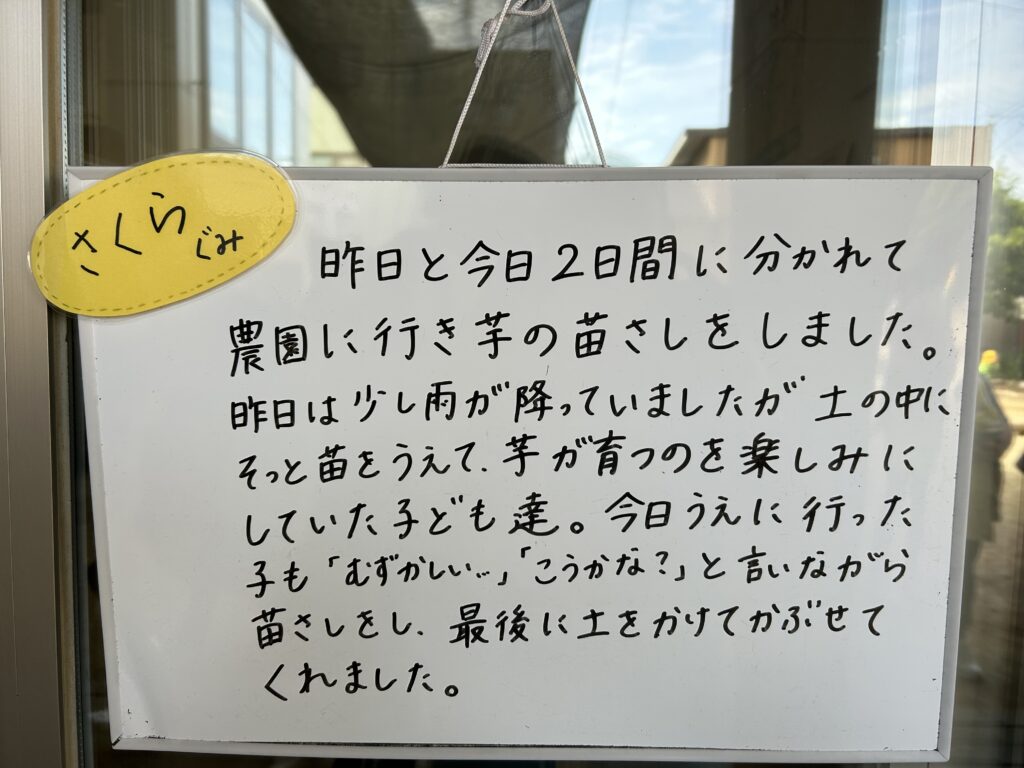 さくらぐみ
昨日と今日2日間に分かれて
農園に行き芋の苗さしをしました。
昨日は少し雨が降っていましたが土の中に
そっと苗をうえて、芋が育つのを楽しみに
していた子ども達。今日うえに行った
子も「むずかしい…」「こうかな?」と言いながら
苗さしをし、最後に土をかけてかぶせて
くれました。